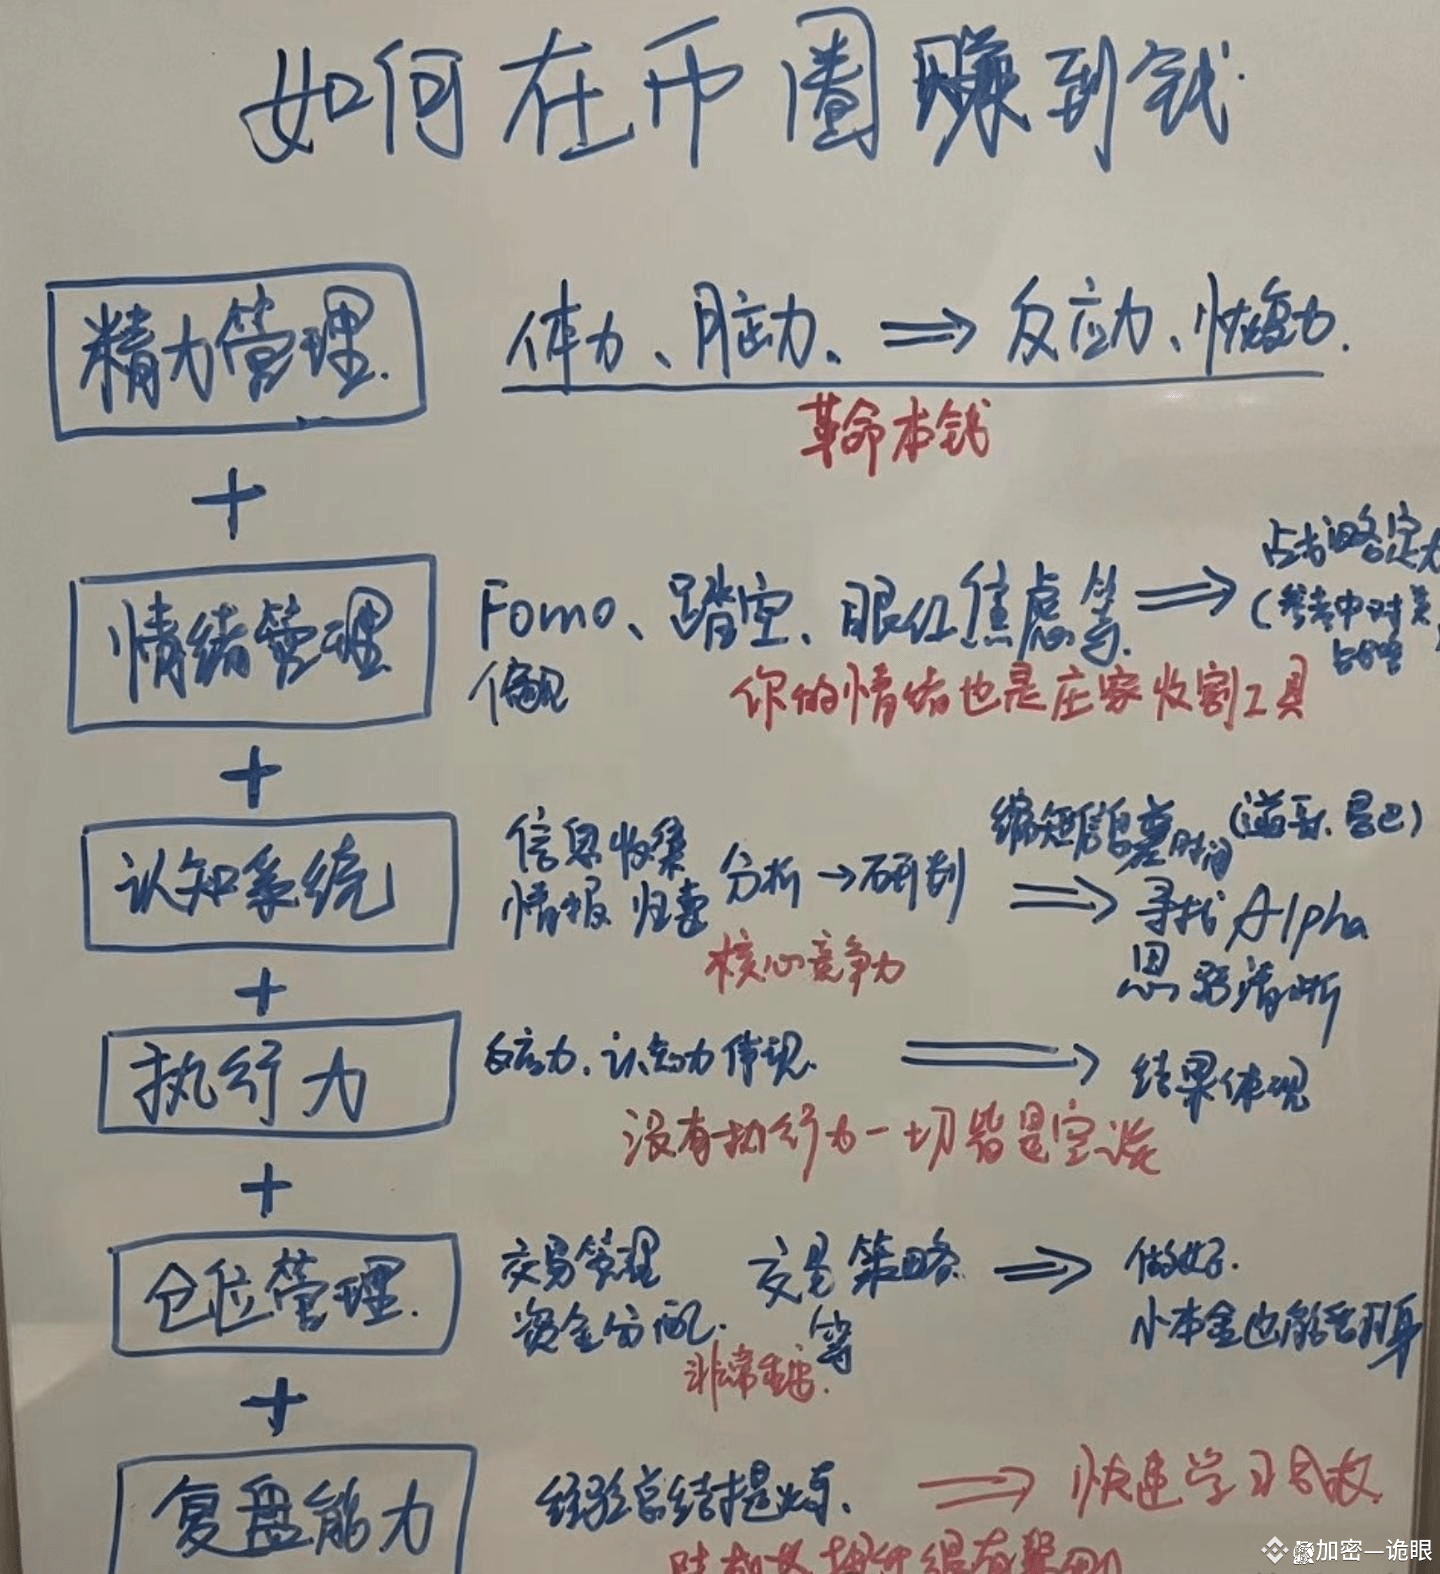 如何在币圈赚到钱
精力管理
体力、脑力、⇒ 反应力、恢复力.
革命本钱
+
情绪管理
Fomo、踏空、眼红焦虑等 ⇒ 占战略定力
偏见
(参考中对美
战略)
你的情绪也是庄家收割工具
+
认知系统
信息收集
情报 归类
分析 → 研判
⇒
缩短信息差时间
寻找 Alpha
思路清晰
核心竞争力
+
执行力
反应力、认知力体现. ⇒ 结果体现
没有执行力一切皆是空谈
+
仓位管理.
交易管理
资金分配.
交易策略
等
⇒ 做好.
小本金也能翻身
非常重要.
+
复盘能力
经验总结提炼、⇒ 快速学习
加密—诡眼